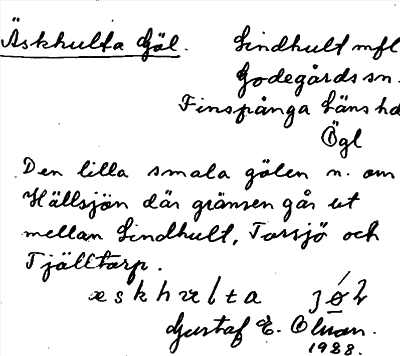 Äskhulta Göl. Lindhult mfl
Godegårds sn.
Finspånga Läns hd
Ögl
Den lilla smala gölen n. om
Hällsjön där gränsen går ut
mellan Lindhult, Torsjö och
Tjälltorp.
æskhulta
Gustaf E. Olson.
1928.